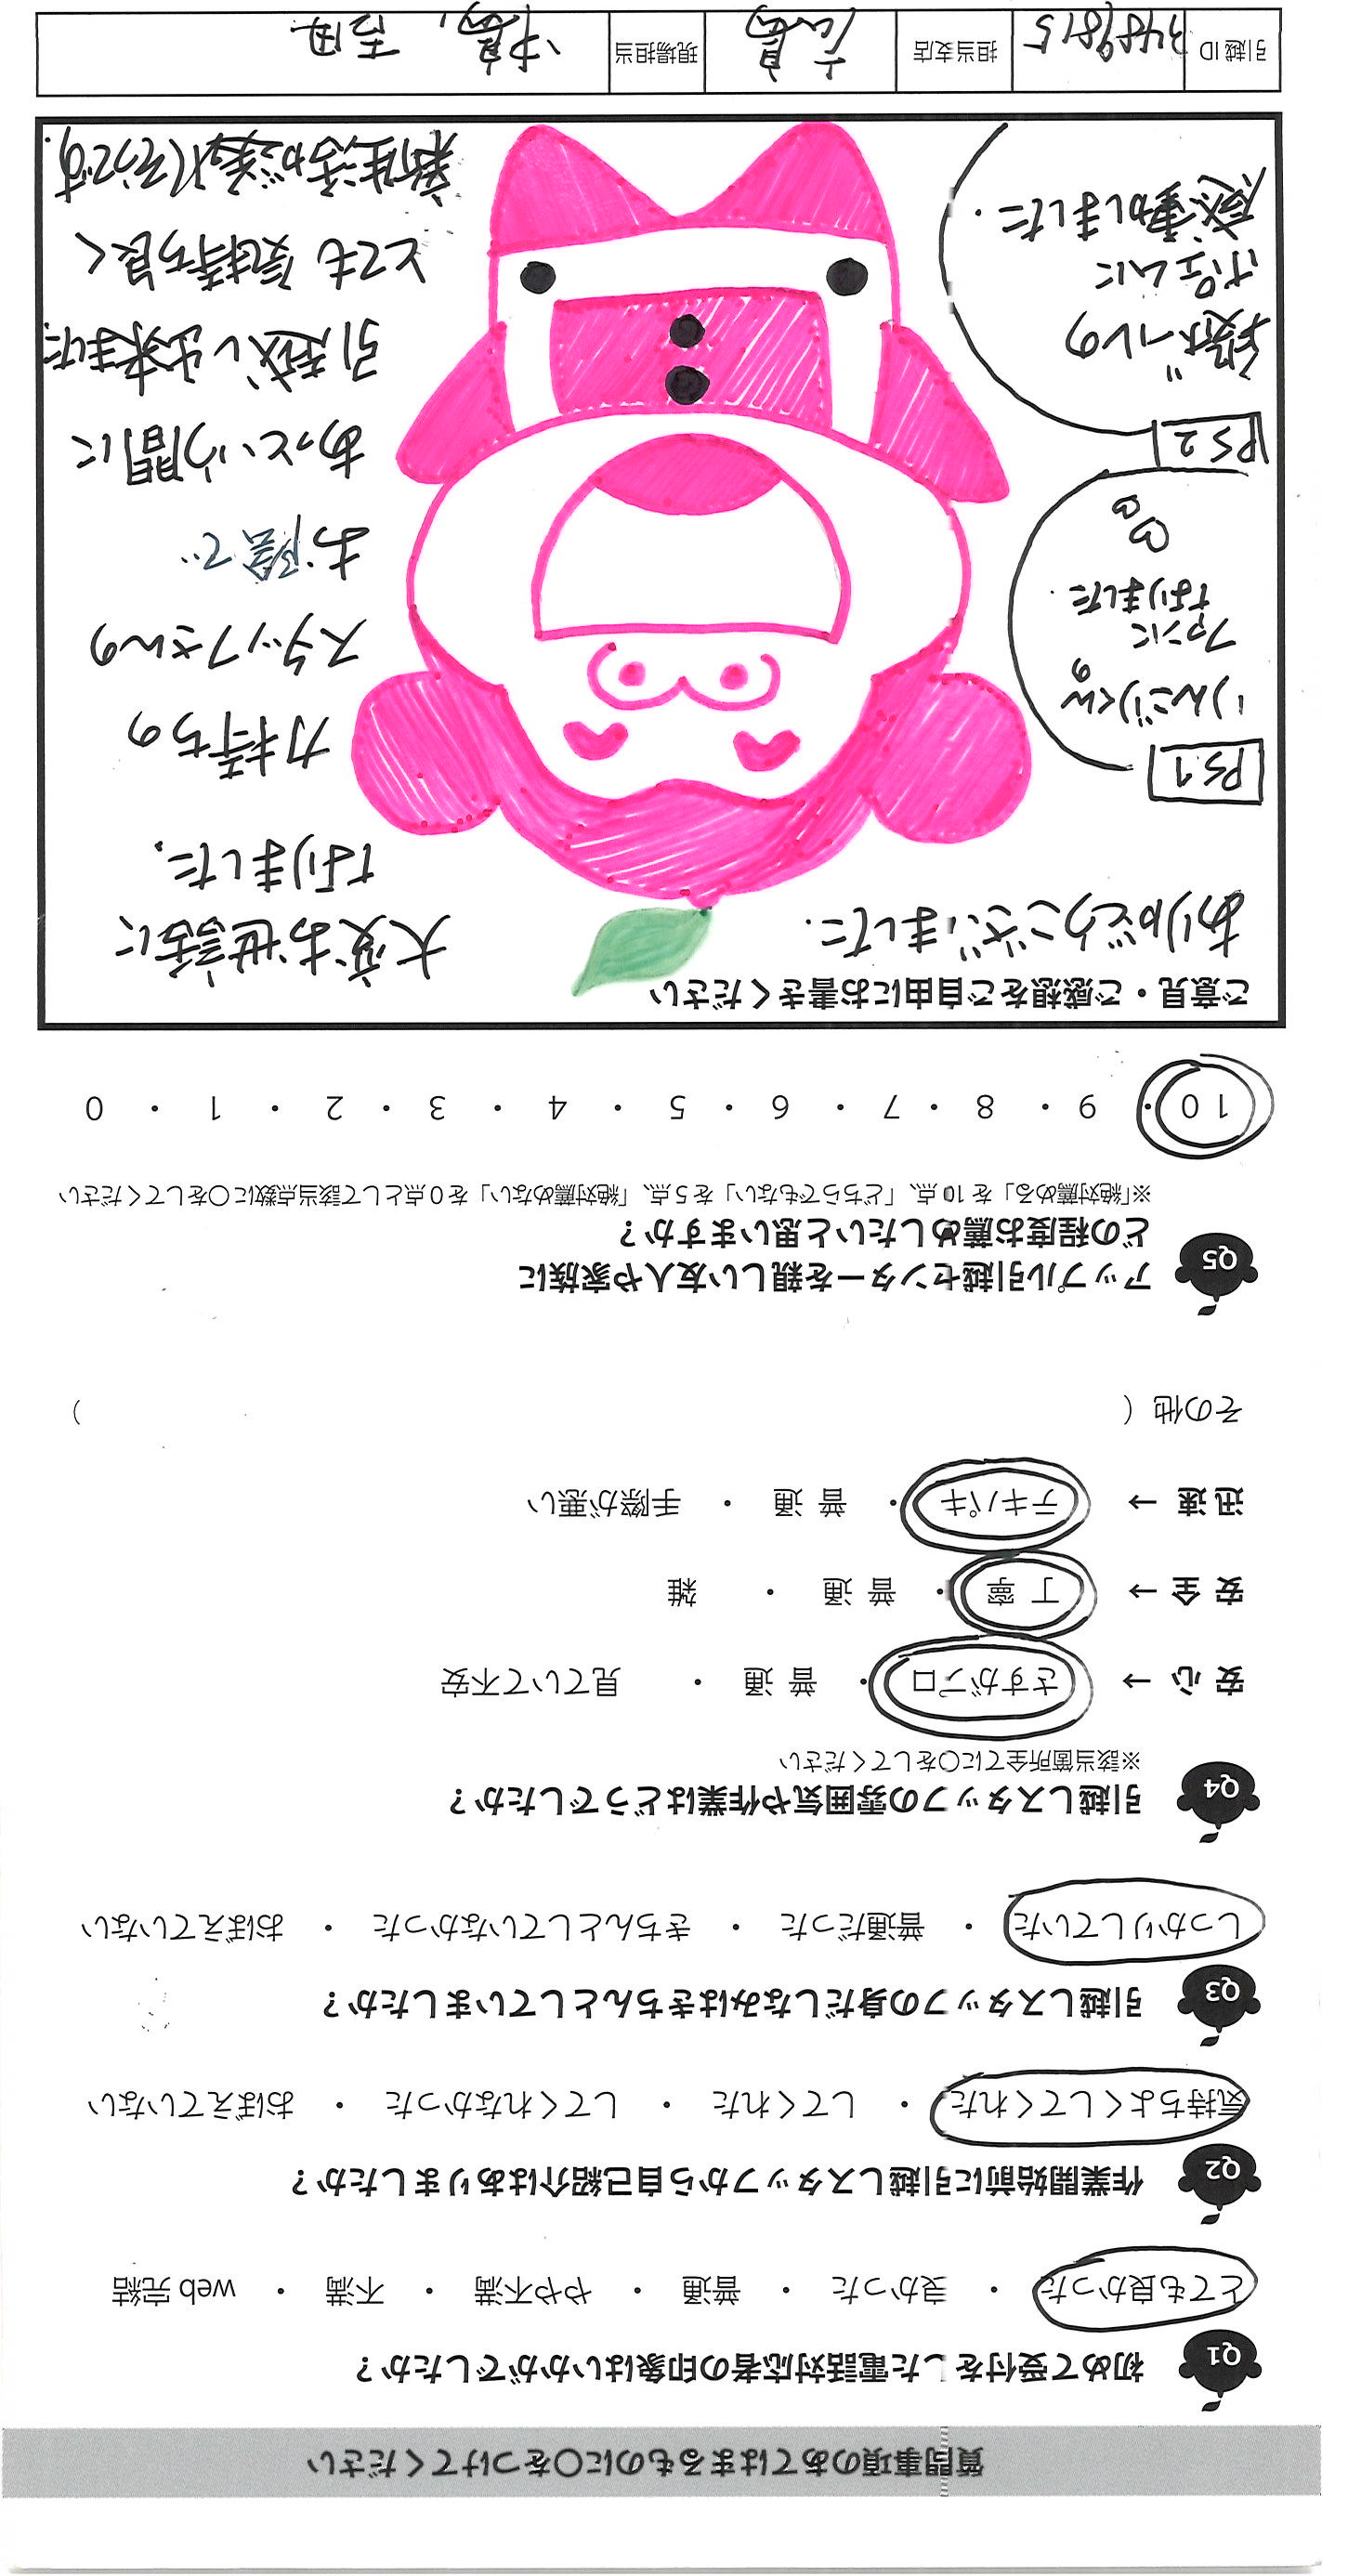 質問事項のあてはまるものに○をつけてください
Q1 初めて受付をした電話対応者の印象はいかがでしたか？
とても良かった ・ 良かった ・ 普通 ・ やや不満 ・ 不満 ・ web 完結
Q2 作業開始前に引越しスタッフから自己紹介はありましたか？
気持ちよくしてくれた ・ してくれた ・ してくれなかった ・ おぼえていない
Q3 引越しスタッフの身だしなみはきちんとしていましたか？
しっかりしていた ・ 普通だった ・ きちんとしていなかった ・ おぼえていない
Q4 引越しスタッフの雰囲気や作業はどうでしたか？
※該当箇所全てに○をしてください
安心 → さすがプロ ・ 普通 ・ 見ていて不安
安全 → 丁寧 ・ 普通 ・ 雑
迅速 → テキパキ ・ 普通 ・ 手際が悪い
その他（ ）
Q5 アップル引越センターを親しい友人や家族に
どの程度お薦めしたいと思いますか？
※「絶対薦める」を 10 点、「どちらでもない」を 5 点、「絶対薦めない」を 0 点として該当点数に○をしてください
10 ・ 9 ・ 8 ・ 7 ・ 6 ・ 5 ・ 4 ・ 3 ・ 2 ・ 1 ・ 0
ご意見・ご感想をご自由にお書きください
ありがとうございました.
PS 1
りんごりくんの
ファンに
なりました.
PS 2
段ボールの
ポエムに
感動しました.
大変お世話に
なりました.
力持ちの
スタッフさんの
お陰で
あっという間に
引越し出来ました
とても気持ち良く
新生活が送れそうです.
引越 ID 3489815 担当支店 広島 現場担当 中島, 吉田